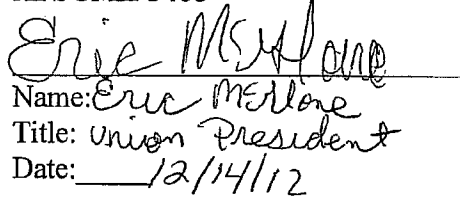 Eric McGlone
Name: Eric McGlone
Title: Union President
Date: 12/14/12